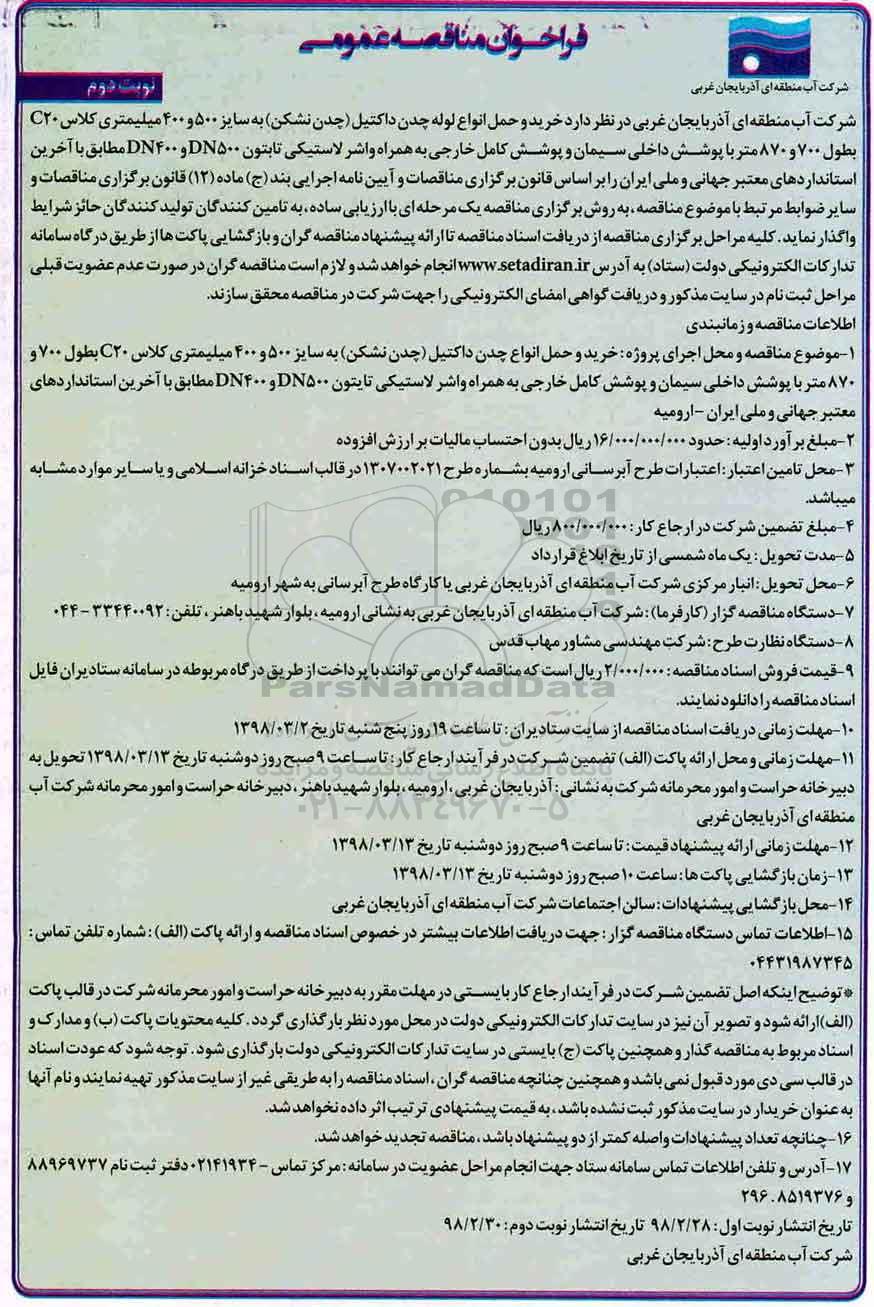 فراخوان مناقصه عمومی
شرکت آب منطقه ای آذربایجان غربی
نوبت دوم
شرکت آب منطقه ای آذربایجان غربی در نظر دارد خرید و حمل انواع لوله چدن داکتیل (چدن نشکن) به سایز ۵۰۰ و ۴۰۰ میلیمتری کلاس C۲۰
بطول ۷۰۰ و ۸۷۰ متر با پوشش داخلی سیمان و پوشش کامل خارجی به همراه واشر لاستیکی تایتون DN۵۰۰ و DN۴۰۰ مطابق با آخرین
استانداردهای معتبر جهانی و ملی ایران را بر اساس قانون برگزاری مناقصات و آیین نامه اجرایی بند (ج) ماده (۱۲) قانون برگزاری مناقصات و
سایر ضوابط مرتبط با موضوع مناقصه، به روش برگزاری مناقصه یک مرحله ای با ارزیابی ساده، به تامین کنندگان تولید کنندگان حائز شرایط
واگذار نماید. کلیه مراحل برگزاری مناقصه از دریافت اسناد مناقصه تا ارائه پیشنهاد مناقصه گران و بازگشایی پاکت ها از طریق درگاه سامانه
تدارکات الکترونیکی دولت (ستاد) به آدرس www.setadiran.ir انجام خواهد شد و لازم است مناقصه گران در صورت عدم عضویت قبلی
مراحل ثبت نام در سایت مذکور و دریافت گواهی امضای الکترونیکی را جهت شرکت در مناقصه محقق سازند.
اطلاعات مناقصه و زمانبندی
۱-موضوع مناقصه و محل اجرای پروژه: خرید و حمل انواع چدن داکتیل (چدن نشکن) به سایز ۵۰۰ و ۴۰۰ میلیمتری کلاس C۲۰ بطول ۷۰۰ و
۸۷۰ متر با پوشش داخلی سیمان و پوشش کامل خارجی به همراه واشر لاستیکی تایتون DN۵۰۰ و DN۴۰۰ مطابق با آخرین استانداردهای
معتبر جهانی و ملی ایران -ارومیه
۲-مبلغ برآورد اولیه: حدود ۱۶/۰۰۰/۰۰۰/۰۰۰ ریال بدون احتساب مالیات بر ارزش افزوده
۳-محل تامین اعتبار: اعتبارات طرح آبرسانی ارومیه بشماره طرح ۱۳۰۷۰۰۲۰۲۱ در قالب اسناد خزانه اسلامی و یا سایر موارد مشابه
میباشد.
۴-مبلغ تضمین شرکت در ارجاع کار: ۸۰۰/۰۰۰/۰۰۰ ریال
۵-مدت تحویل: یک ماه شمسی از تاریخ ابلاغ قرارداد
۶-محل تحویل: انبار مرکزی شرکت آب منطقه ای آذربایجان غربی یا کارگاه طرح آبرسانی به شهر ارومیه
۷-دستگاه مناقصه گزار (کارفرما): شرکت آب منطقه ای آذربایجان غربی به نشانی ارومیه، بلوار شهید باهنر، تلفن: ۳۳۴۴۰۰۹۲ - ۰۴۴
۸-دستگاه نظارت طرح: شرکت مهندسی مشاور مهاب قدس
۹-قیمت فروش اسناد مناقصه: ۲/۰۰۰/۰۰۰ ریال است که مناقصه گران می توانند با پرداخت از طریق درگاه مربوطه در سامانه ستاد یران فایل
اسناد مناقصه را دانلود نمایند.
۱۰-مهلت زمانی دریافت اسناد مناقصه از سایت ستاد یران: تا ساعت ۱۹ روز پنج شنبه تاریخ ۱۳۹۸/۰۳/۲
۱۱-مهلت زمانی و محل ارائه پاکت (الف) تضمین شرکت در فرآیند ارجاع کار: تا ساعت ۹ صبح روز دوشنبه تاریخ ۱۳۹۸/۰۳/۱۳ تحویل به
دبیرخانه حراست و امور محرمانه شرکت به نشانی: آذربایجان غربی، ارومیه، بلوار شهید باهنر، دبیرخانه حراست و امور محرمانه شرکت آب
منطقه ای آذربایجان غربی
۱۲-مهلت زمانی ارائه پیشنهاد قیمت: تا ساعت ۹ صبح روز دوشنبه تاریخ ۱۳۹۸/۰۳/۱۳
۱۳-زمان بازگشایی پاکت ها: ساعت ۱۰ صبح روز دوشنبه تاریخ ۱۳۹۸/۰۳/۱۳
۱۴-محل بازگشایی پیشنهادات: سالن اجتماعات شرکت آب منطقه ای آذربایجان غربی
۱۵-اطلاعات تماس دستگاه مناقصه گزار: جهت دریافت اطلاعات بیشتر در خصوص اسناد مناقصه و ارائه پاکت (الف): شماره تلفن تماس:
۰۴۴۳۱۹۸۷۳۴۵
*توضیح اینکه اصل تضمین شرکت در فرآیند ارجاع کار بایستی در مهلت مقرر به دبیرخانه حراست و امور محرمانه شرکت در قالب پاکت
(الف) ارائه شود و تصویر آن نیز در سایت تدارکات الکترونیکی دولت در محل مورد نظر بارگذاری گردد. کلیه محتویات پاکت (ب) و مدارک و
اسناد مربوط به مناقصه گذار و همچنین پاکت (ج) بایستی در سایت تدارکات الکترونیکی دولت بارگذاری شود. توجه شود که عودت اسناد
در قالب سی دی مورد قبول نمی باشد و همچنین چنانچه مناقصه گران، اسناد مناقصه را به طریقی غیر از سایت مذکور تهیه نمایند و نام آنها
به عنوان خریدار در سایت مذکور ثبت نشده باشد، به قیمت پیشنهادی ترتیب اثر داده نخواهد شد.
۱۶-چنانچه تعداد پیشنهادات واصله کمتر از دو پیشنهاد باشد، مناقصه تجدید خواهد شد.
۱۷-آدرس و تلفن اطلاعات تماس سامانه ستاد جهت انجام مراحل عضویت در سامانه: مرکز تماس - ۰۲۱۴۱۹۳۴ دفتر ثبت نام ۸۸۹۶۹۷۳۷
و ۸۵۱۹۳۷۶ . ۲۹۶
تاریخ انتشار نوبت اول: ۹۸/۲/۲۸ تاریخ انتشار نوبت دوم: ۹۸/۲/۳۰
شرکت آب منطقه ای آذربایجان غربی
ParsNamadData
۰۲۱-۸۸۳۴۹۶۷۰-۵